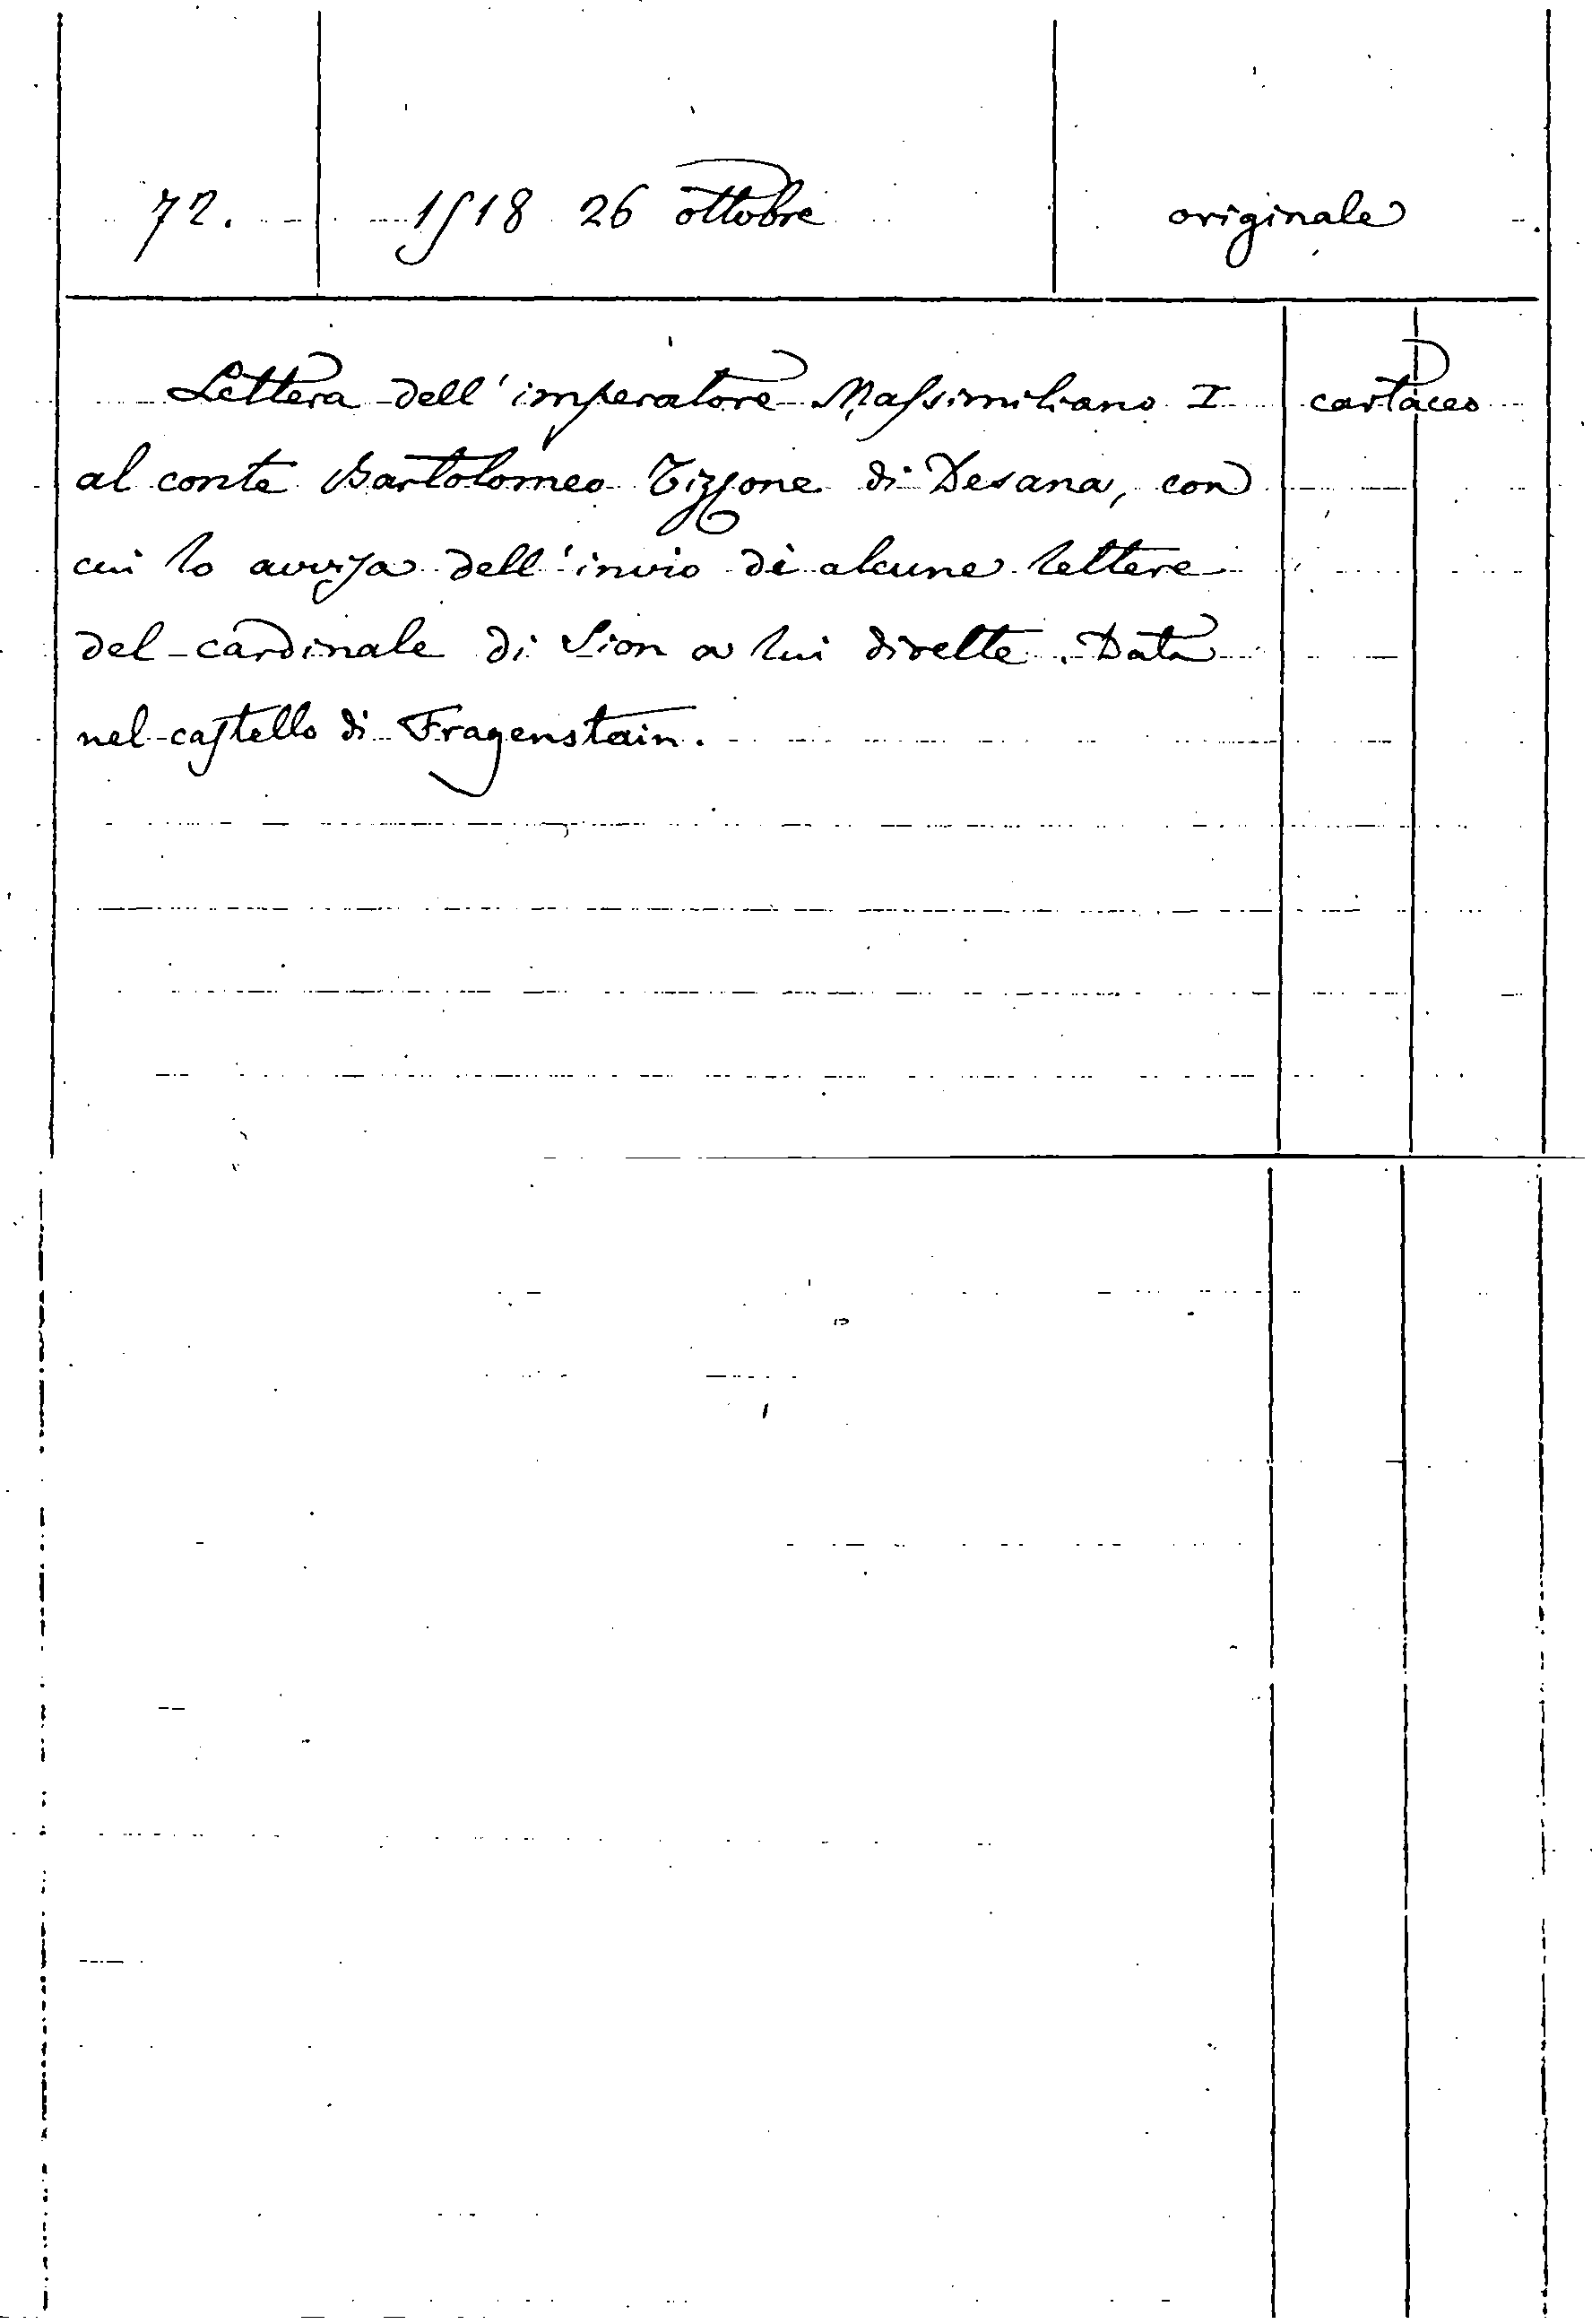 72. 1518 26 ottobre originale
Lettera dell'imperatore Massimiliano I cartaceo
al conte Bartolomeo Tizzone di Desana, con
cui lo avvisa dell'invio di alcune lettere
del cardinale di Sion a lui dirette. Data
nel castello di Fragenstain.